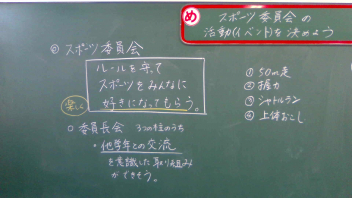 め スポーツ委員会の
活動(イベント)を決めよう
◎ スポーツ委員会
ルールを守って
スポーツをみんなに
楽しく 好きになってもらう。
○ 委員長会 3つの柱のうち
・他学年との交流
を意識した取り組み
ができそう。
① 50m走
② 握力
③ シャトルラン
④ 上体おこし